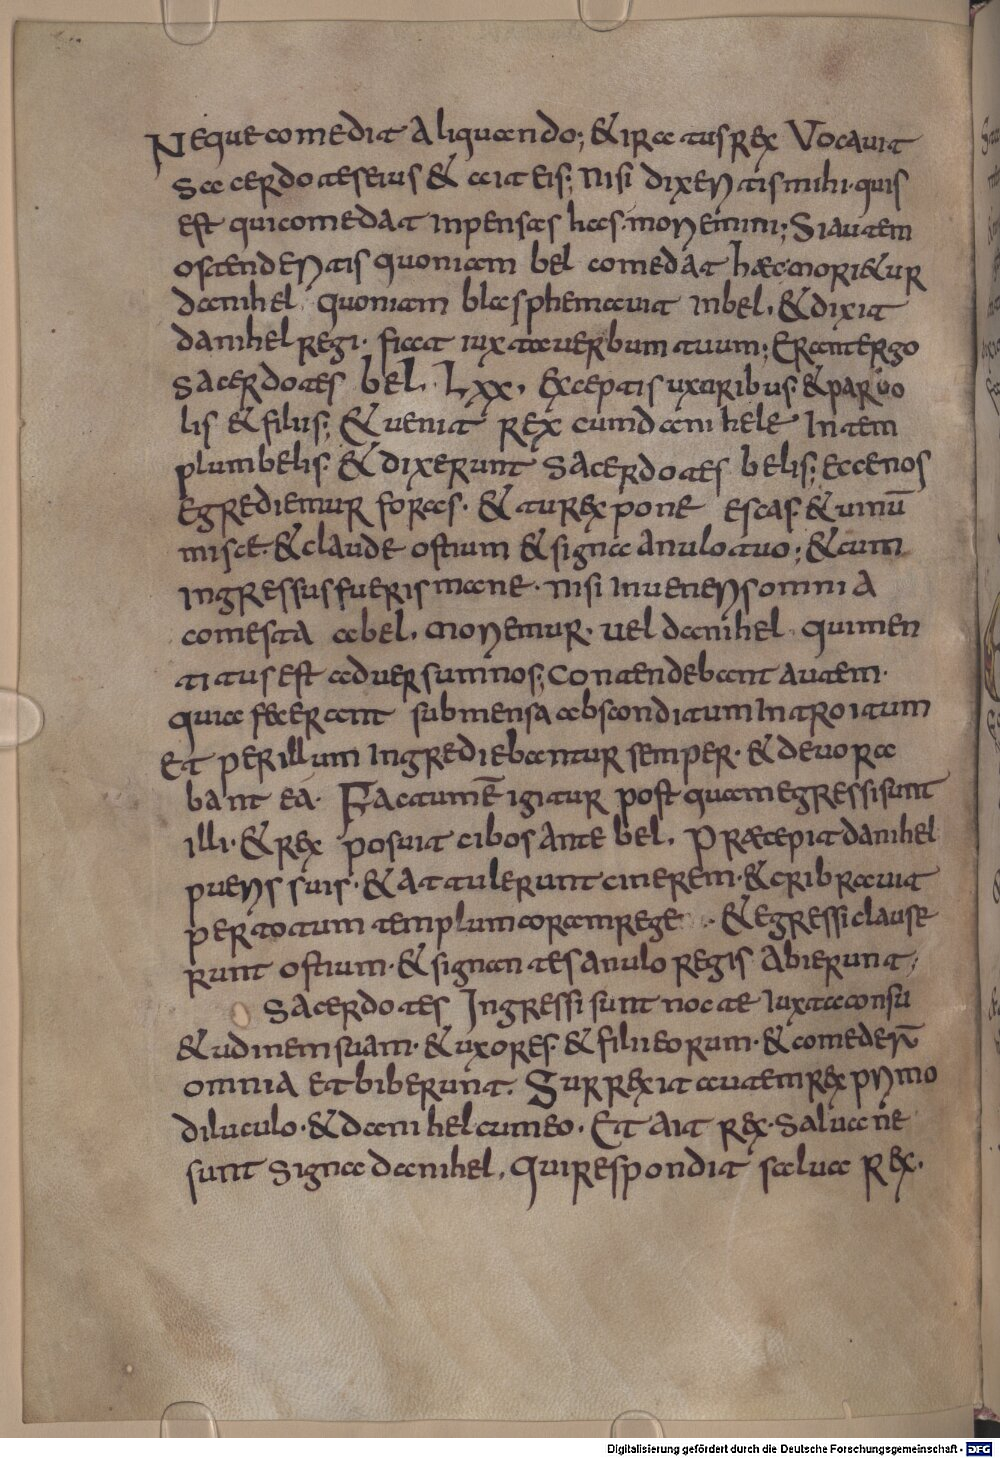 Neque comedit aliquando; & iratus rex Vocauit
sacerdotes eius & ait eis; nisi dixeritis mihi· quis
est qui comedat inpensas has· moriemini; Si autem
ostenderitis quoniam bel comedat hæc morietur
danihel quoniam blasphemauit in bel, & dixit
danihel regi· fiat iuxta uerbum tuum; Erant ergo
sacerdotes bel· Lxx, exceptis uxoribus· & paruo
lis & filiis; & uenit rex cum danihele In tem
plum belis· & dixerunt sacerdotes belis; ecce nos
egrediemur foras· & tu rex pone escas· & uinū
misce· & claude ostium & signa anulo tuo; & cum
ingressus fueris mane· nisi inueneris omnia
comesta a bel, moriemur· uel danihel quimen
titus est aduersum nos; Contendebant autem·
quia fecerant sub mensa absconditum Introitum
Et per illum Ingrediebantur semper· & deuora
bant ea· Factum ē igitur postquam egressi sunt
illi· & rex posuit cibos ante bel, Præcepit danihel
pueris suis· & attulerunt cinerem· & cribrauit
per totum templum coram rege· & egressi clause
runt ostium· & signantes anulo regis abierunt;
Sacerdotes Ingressi sunt nocte Iuxta consu
& udinem suam· & uxores· & filii eorum· & comederū
omnia et biberunt. Surrexit autem rex primo
diluculo· & danihel cum eo, Et ait rex· saluane
sunt signa danihel, Qui respondit salua Rex,
Digitalisierung gefördert durch die Deutsche Forschungsgemeinschaft - DFG